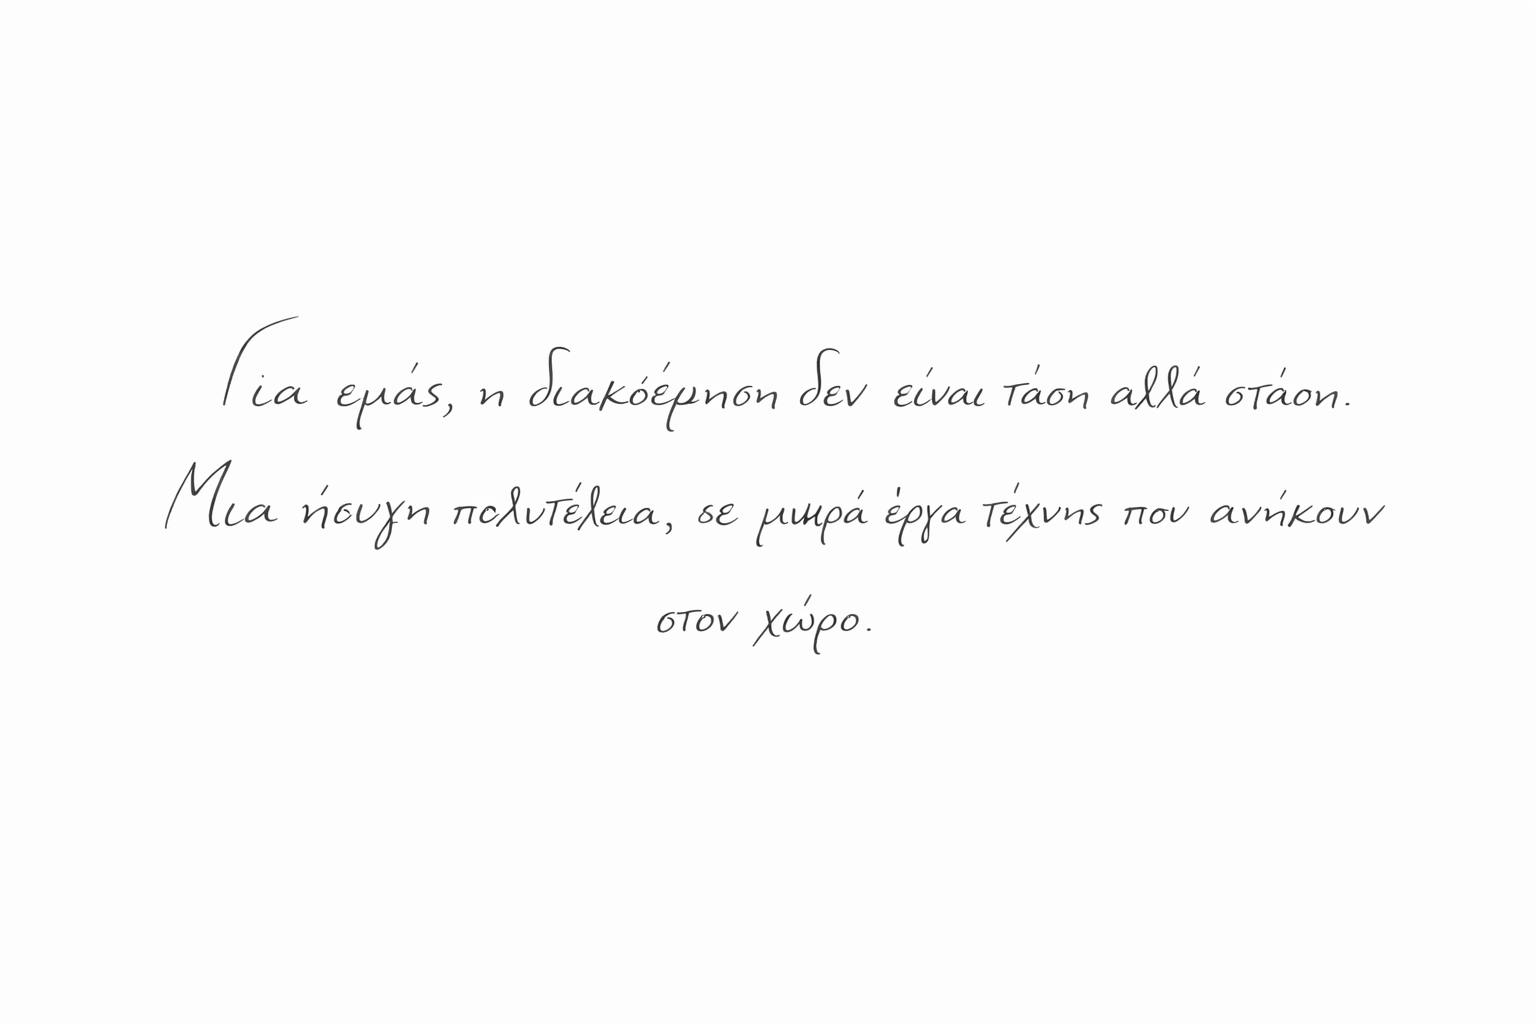 Για εμάς, η διακόέρηση δεν είναι τάση αλλά στάση.
Μια ήσυχη πολυτέλεια, σε μικρά έργα τέχνης που ανήκουν
στον χώρο.